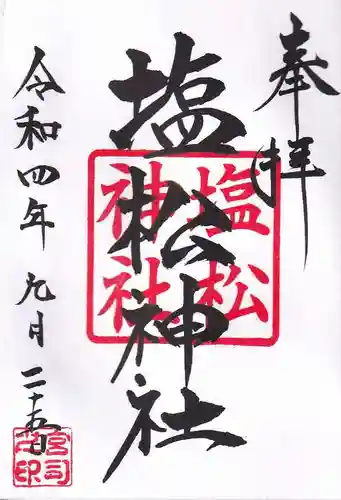 奉拝
塩松神社
塩松
神社
令和四年九月二十五日
宮司
之印